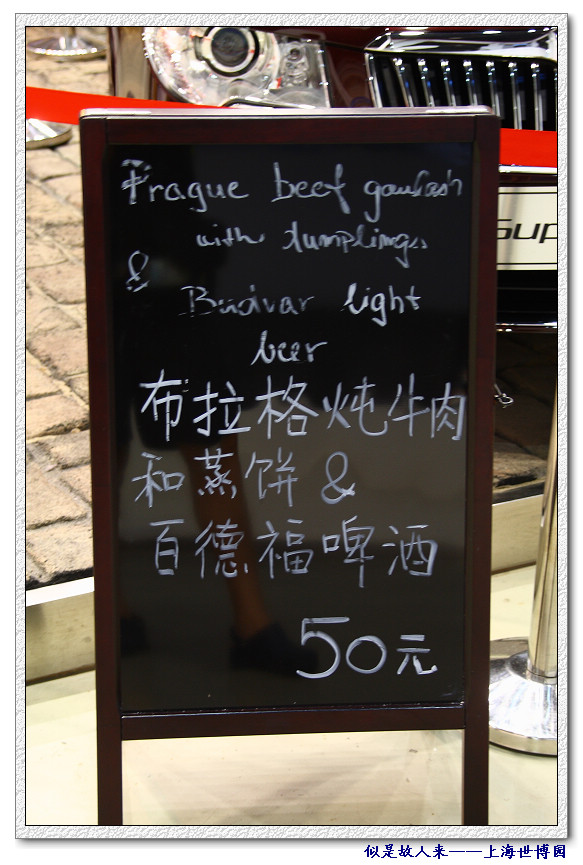 Prague beef goulash
with dumplings
&
Budvar light
beer
布拉格炖牛肉
和蒸饼 &
百德福啤酒
50元
Sup
似是故人来——上海世博园